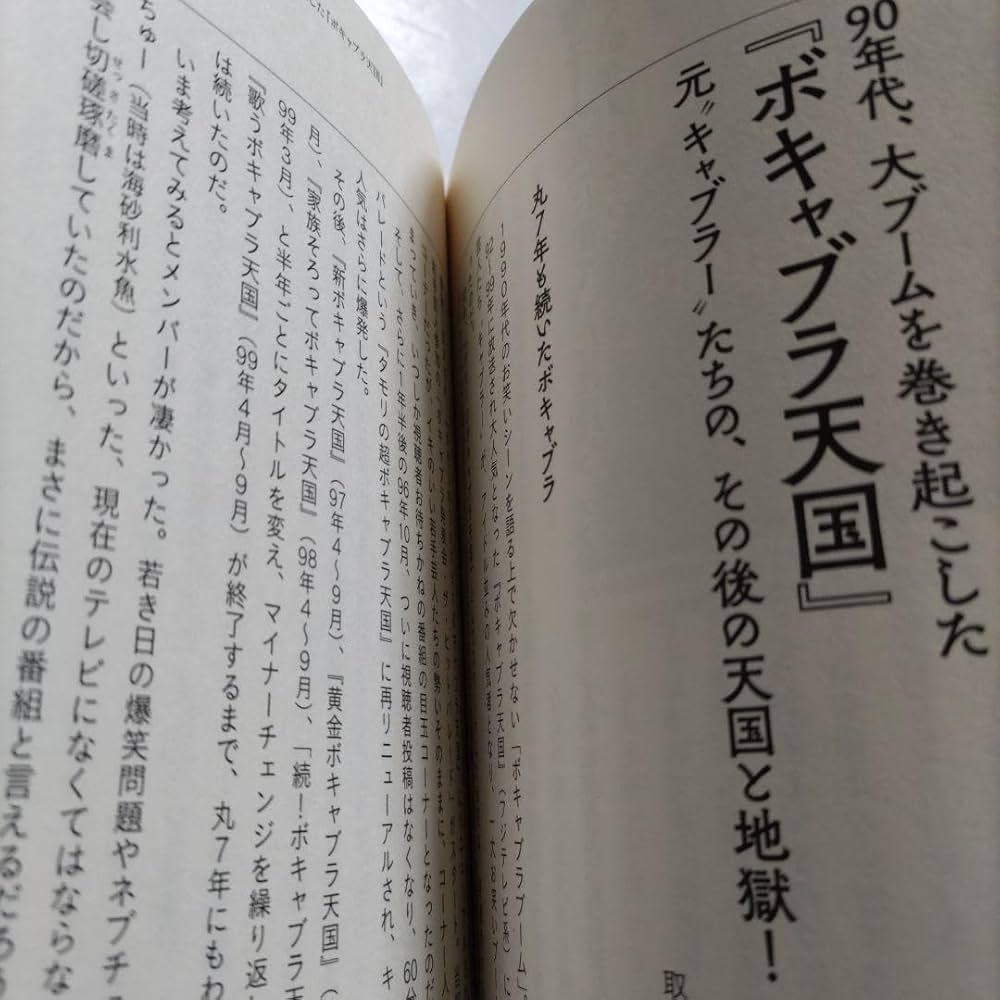 90年代、大ブームを巻き起こした
『ボキャブラ天国』
元〝キャブラー〟たちの、その後の天国と地獄！
取
丸７年も続いたボキャブラ
１９９０年代のお笑いシーンを語る上で欠かせない「ボキャブラブーム」。
92～99年に放送され大人気となった『ボキャブラ天国』（フジテレビ系）に
まっていき、いつしか視聴者お待ちかねの番組の目玉コーナーとなったのだ
そして、さらに１年半後の96年10月、ついに視聴者投稿はなくなり、60分
パレードという『タモリの超ボキャブラ天国』に再リニューアルされ、キ
人気はさらに爆発した。
その後、『新ボキャブラ天国』（97年４～９月）、『黄金ボキャブラ天国』（
月）、『家族そろってボキャブラ天国』（98年４～９月）、「続！ボキャブラ天
99年３月）、と半年ごとにタイトルを変え、マイナーチェンジを繰り返し
『歌うボキャブラ天国』（99年４月～９月）が終了するまで、丸７年にもわ
は続いたのだ。
いま考えてみるとメンバーが凄かった。若き日の爆笑問題やネプチ
ちゅー（当時は海砂利水魚）といった、現在のテレビになくてはならな
し切磋琢磨していたのだから、まさに伝説の番組と言えるだろう